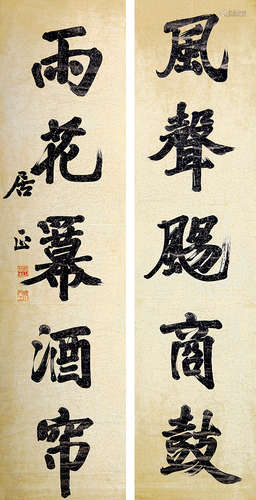 風聲颺商鼓
雨花冪酒帘
居正